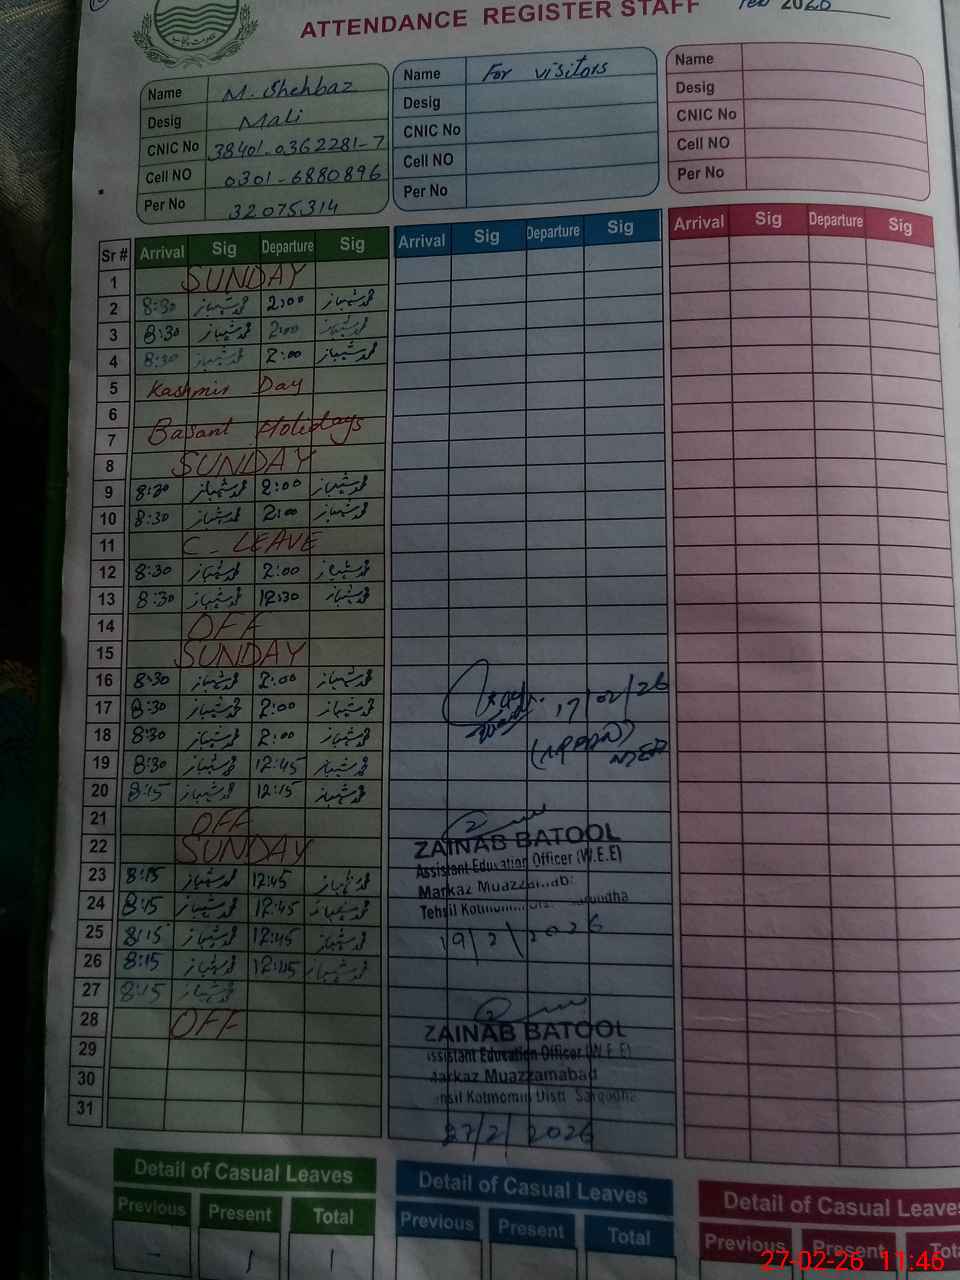 ATTENDANCE REGISTER STAFF Feb 2026
Name M. Shehbaz
Desig Mali
CNIC No 38401-0362281-7
Cell NO 0301-6880896
Per No 32075314
Name For visitors
Desig
CNIC No
Cell NO
Per No
Name
Desig
CNIC No
Cell NO
Per No
Sr # Arrival Sig Departure Sig Arrival Sig Departure Sig Arrival Sig Departure Sig
1 SUNDAY
2 8:30 محمد شہباز 2:00 محمد شہباز
3 8:30 محمد شہباز 2:00 محمد شہباز
4 8:30 محمد شہباز 2:00 محمد شہباز
5 Kashmir Day
6
7 Basant Holidays
8 SUNDAY
9 8:30 محمد شہباز 2:00 محمد شہباز
10 8:30 محمد شہباز 2:00 محمد شہباز
11 C. LEAVE
12 8:30 محمد شہباز 2:00 محمد شہباز
13 8:30 محمد شہباز 12:30 محمد شہباز
14 OFF
15 SUNDAY
16 8:30 محمد شہباز 2:00 محمد شہباز
17 8:30 محمد شہباز 2:00 محمد شہباز 17/02/26
18 8:30 محمد شہباز 2:00 محمد شہباز
19 8:30 محمد شہباز 12:45 محمد شہباز
20 8:15 محمد شہباز 12:15 محمد شہباز
21 OFF
22 SUNDAY
23 8:15 محمد شہباز 12:45 محمد شہباز
24 8:15 محمد شہباز 12:45 محمد شہباز
25 8:15 محمد شہباز 12:45 محمد شہباز
26 8:15 محمد شہباز 12:45 محمد شہباز
27 8:15 محمد شہباز
28 OFF
29
30
31
ZAINAB BATOOL
Assistant Education Officer (W.E.E)
Markaz Muazzamabad
Tehsil Kotmomin
19/2/2026
ZAINAB BATOOL
Assistant Education Officer (W.E.E)
Markaz Muazzamabad
Tehsil Kotmomin Distt Sargodha
27/2/2026
Detail of Casual Leaves
Previous Present Total
- 1 1
Detail of Casual Leaves
Previous Present Total
Detail of Casual Leaves
Previous Present Tot
27-02-26 11:46